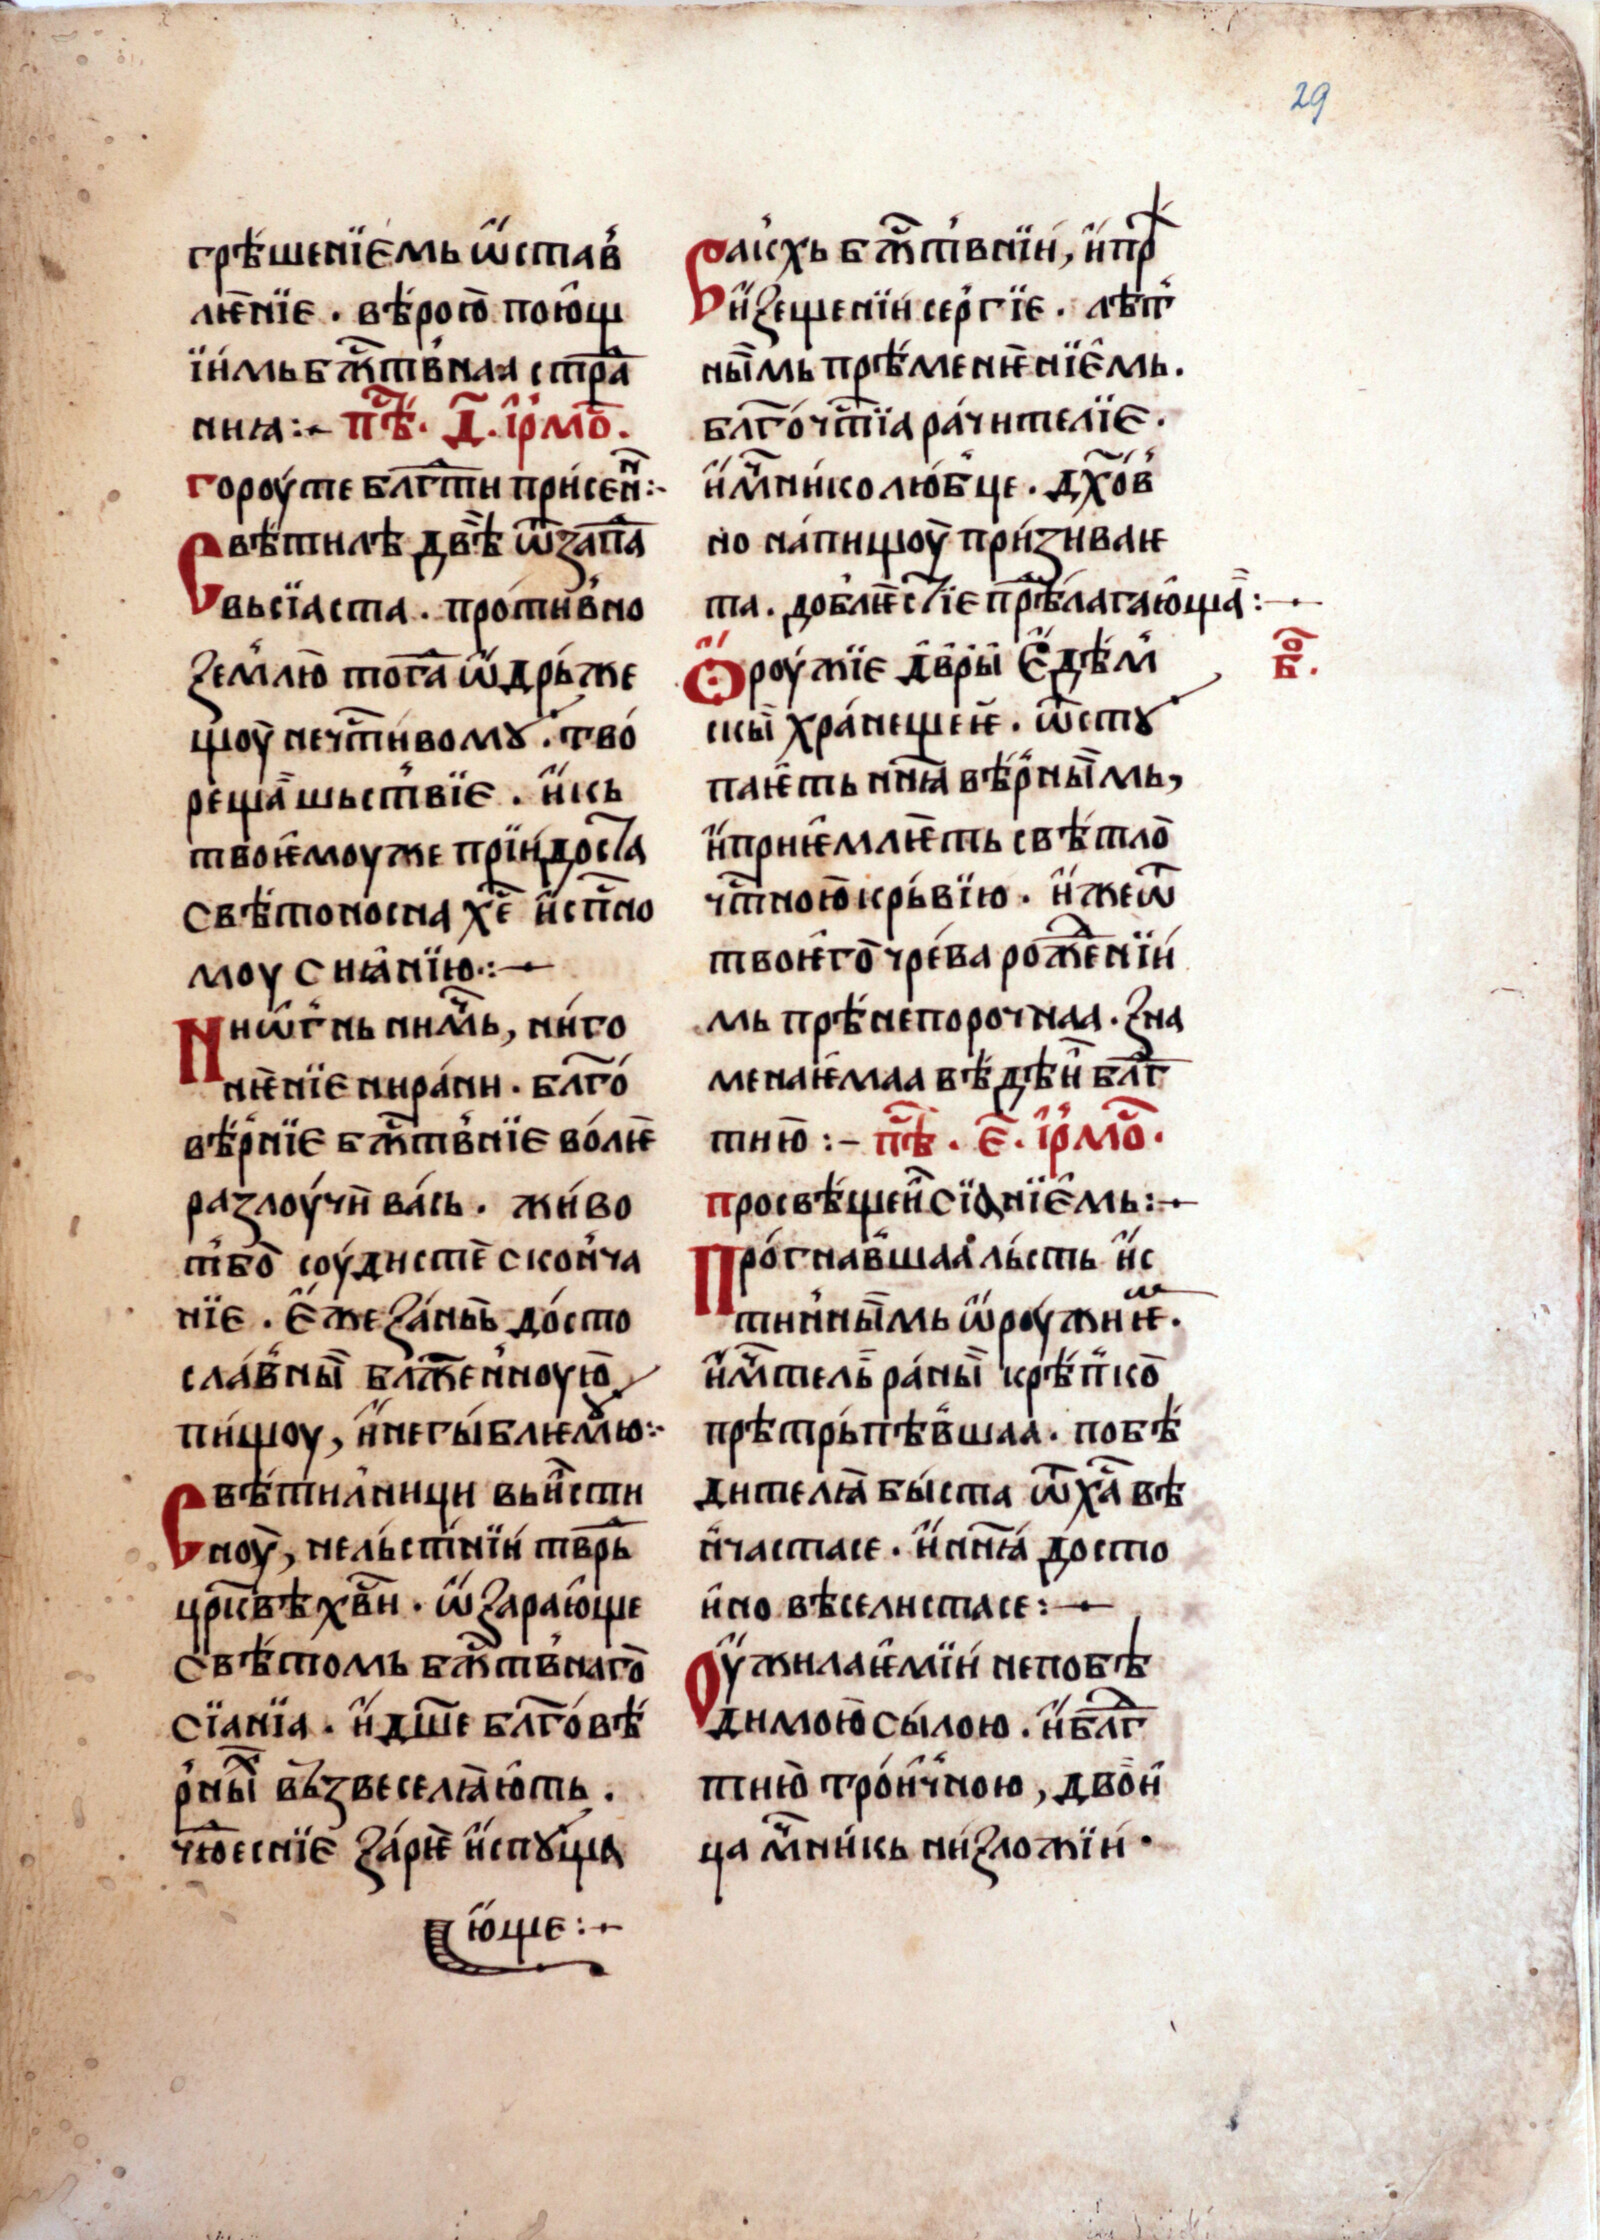 29
грѣшенїємь ѡ҆став
лѥнїе . вѣрою поющ
їимь бж҃твнаꙗ стра
ниꙗ :– пѣ҃ . д҃ . їрмо .
гороу те блгⷣти присен :–
Свѣтилѣ двѣ ѿ запа
вьсїаста . противно
землю тог҃а ѡ҆дрьже
щоу нечт҃ивомꙋ . тво
реща шьствїе . и҆ кь
твоѥмоуже прїидоста
свѣтоносна хе҃ и҆спⷭ҇но
моу сиꙗнїю :–
Ни ѡ҆гнь ни мчь, ни го
нѥнїе ни рани . бл҃го
вѣрнїе бж҃твнїе волѥ
разлоучи вась . живо
тво соудисте сконча
нїе . є҆же зань досто
славны блж҃енноую
пищоу, и҆ негыблѥмꙋю :–
Свѣтилници вь и҆сти
ноу, нельстнїи тврь
црк҃вѣ хв҃и . ѡ҆зарающе
свѣтомь бж҃твнаго
сїанїа . и҆ дш҃е бл҃говѣ
рных вьзвеселꙗють .
чюеснїе зарѥ и҆спꙋща
юще :–
Вакхь бж҃твнїи, и҆ пр
и҆зещенїи сергїе . лѣп
нымь прѣменѥнїемь .
бл҃гочт҃їа рачителїе .
и҆ мч҃николюбце . дх҃ов
но на пищоу призиваѥ
та . доблѥстїе прѣлагающа :–
Ѻроужїе двры є҆дѣм
скы хранещеѥ . ѿстꙋ
паѥть нн҃ꙗ вѣрнымь,
и҆ приѥмлѥть свѣтло
чт҃ною крьвїю . и҆же ѿ
твоѥго чрѣва рожⷣенїи
мь прѣнепорочнаа . зна
менаѥмаа вѣдѣн блг҃
тию :– пѣ҃ . є҃ . їрмо .
бо .
просвѣщен сїанїемь :–
Прогнавшаа льсть и҆с
тиннымь ѡ҆роужиѥ .
и҆ мч҃тель раны крѣпко
прѣтрьпѣвшаа . побѣ
дителꙗ быста ѿ ха҃ вѣ
нчастасе . и҆ нн҃ꙗ досто
и҆но вѣселистасе :–
Оу҆жилаѥмїи непобѣ
димою сылою . и҆ блг҃
тию трои҆чною, двои
ца мч҃никь низложїи .